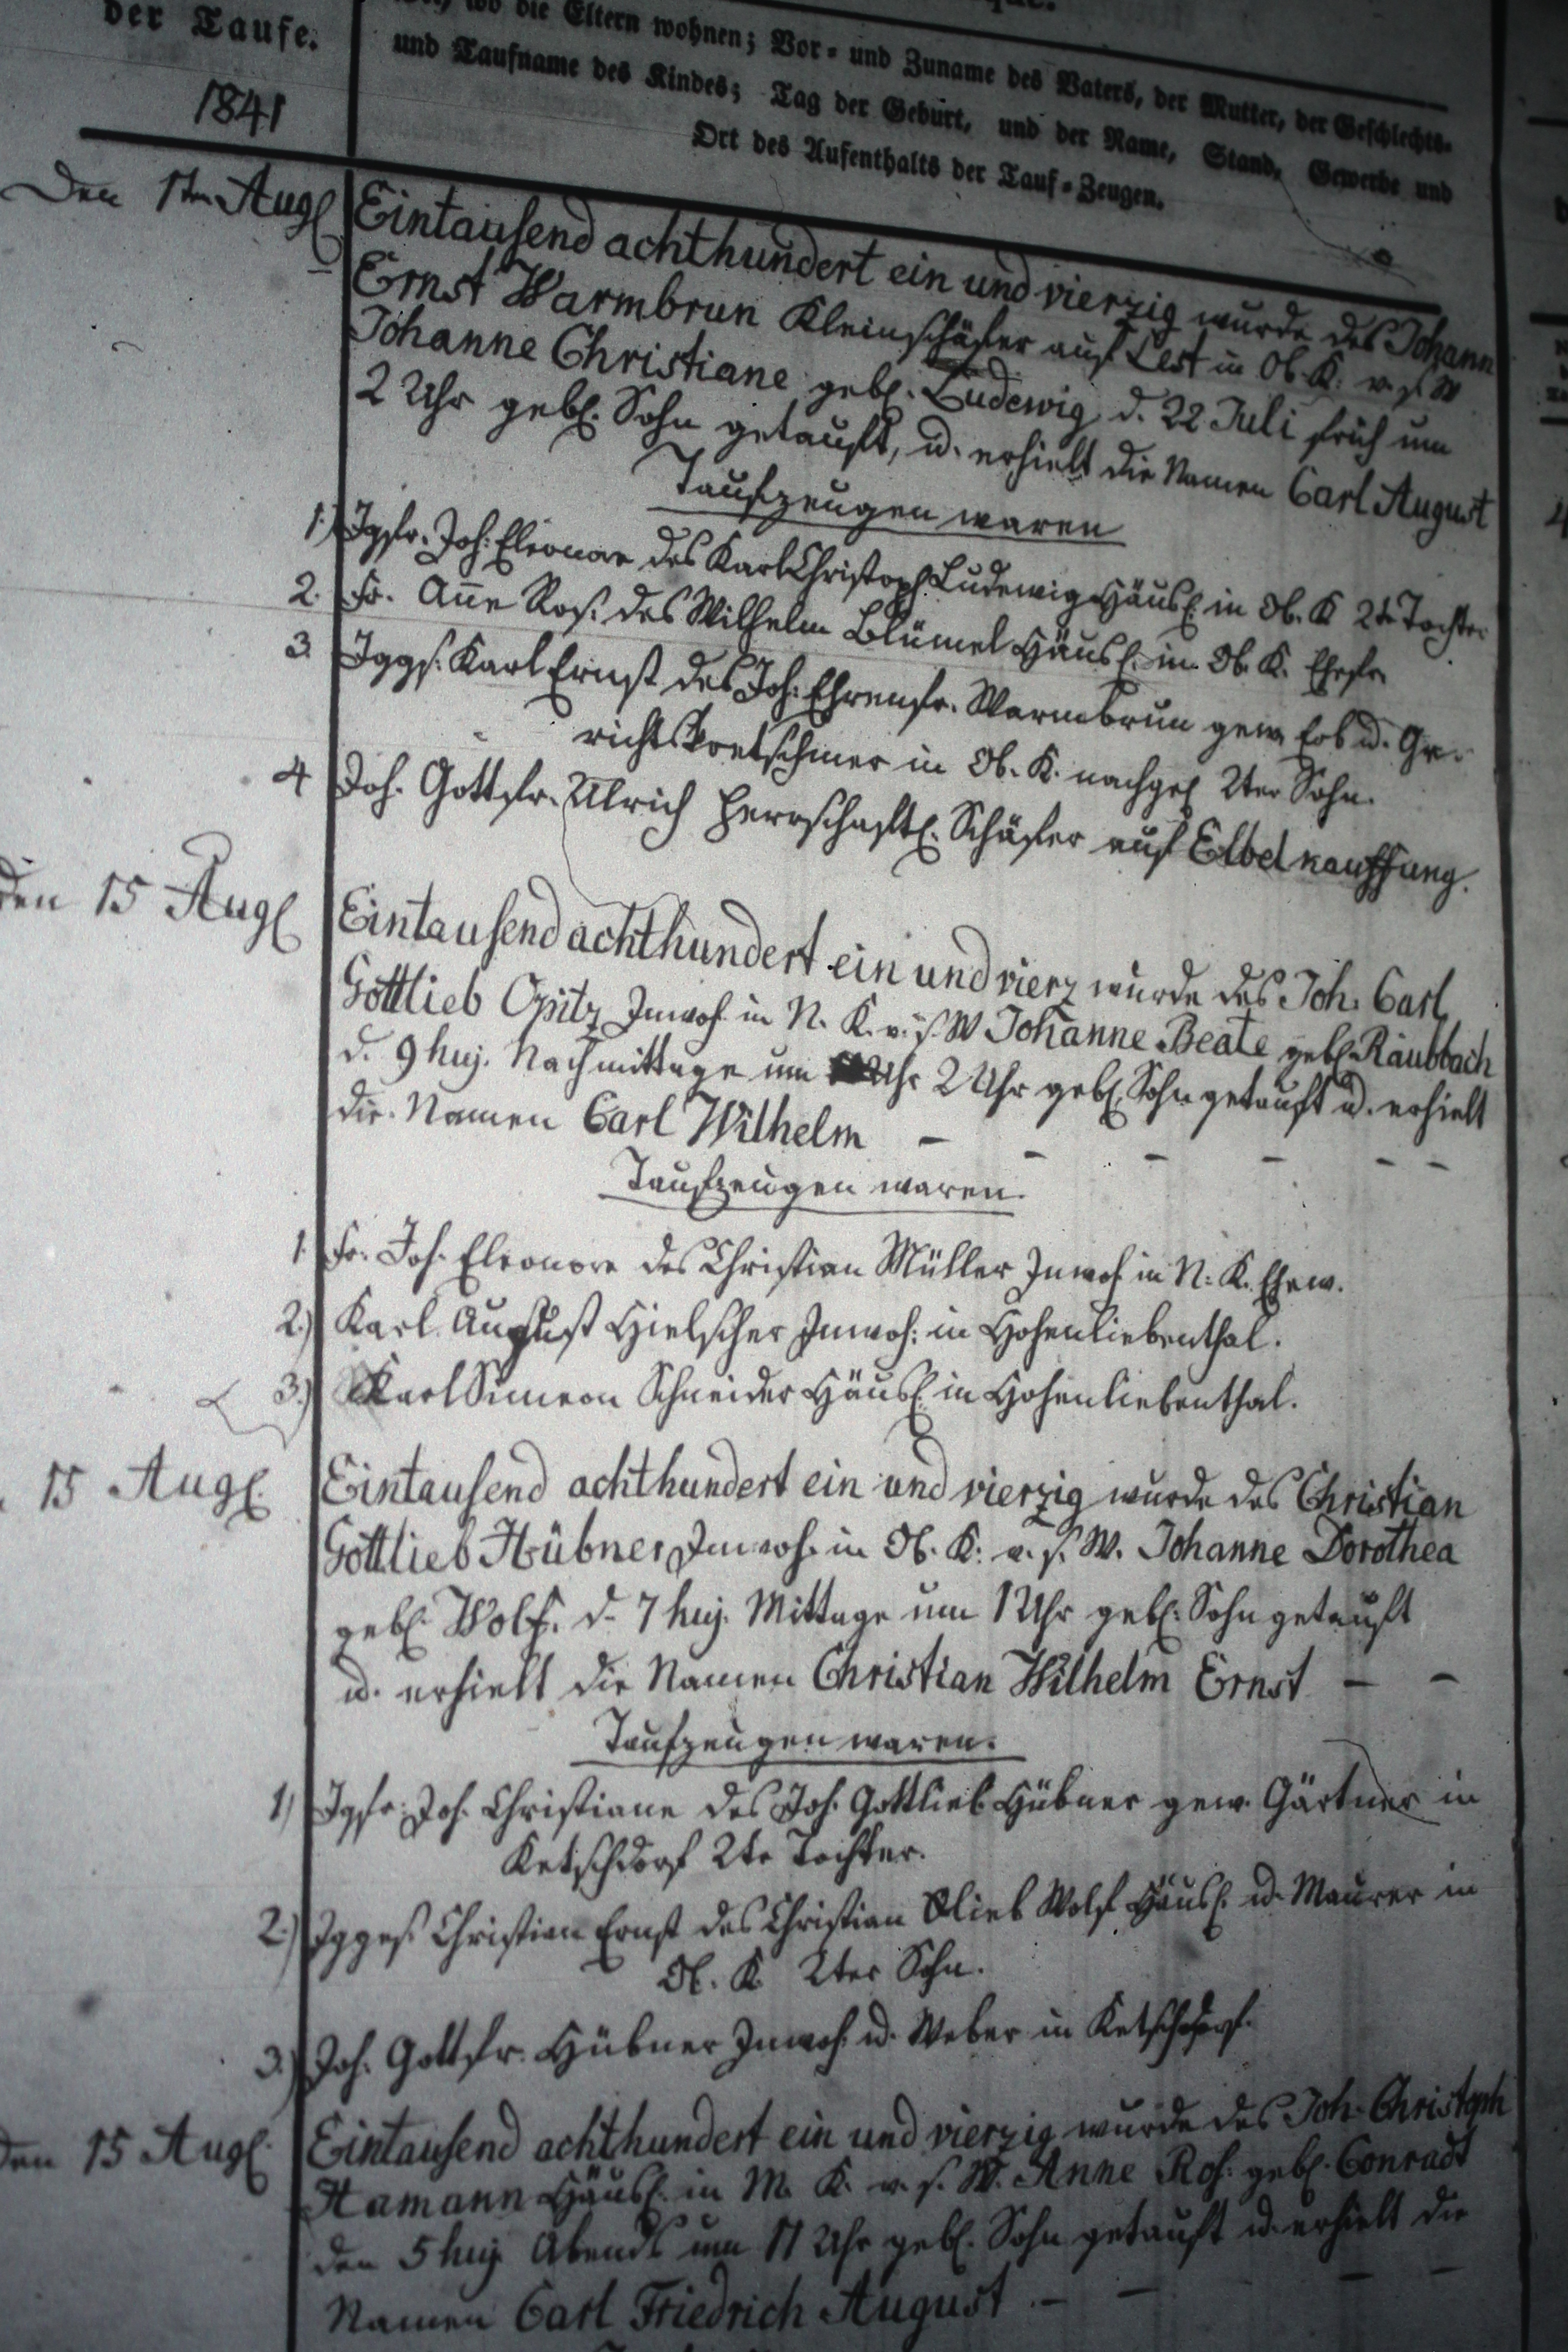 der Taufe.
wo die Eltern wohnen; Vor- und Zuname des Vaters, der Mutter, der Geschlechts-
und Taufname des Kindes; Tag der Geburt, und der Name, Stand, Gewerbe und
Ort des Aufenthalts der Tauf-Zeugen.
1841
Den 1ten Augl
Eintausend achthundert ein und vierzig wurde des Johann
Ernst Warmbrun Kleinschäfer auf Lest in Ob. K. v. s. W
Johanne Christiane gebl. Ludewig d. 22 Juli früh um
2 Uhr gebl. Sohn getauft, u. erhielt die Namen Carl August
Taufzeugen waren
1.) Jgfr. Joh: Eleonore des Karl Christoph Ludewig Häusl. in Ob. K 2te Tochter
2. Fr. Añe Ros. des Wilhelm Blümel Häusl. in Ob. K. Ehefr.
3. Jggs. Karl Ernst des Joh. Ehrenfr. Warmbrun gew. Erb u. Ge-
richtskretschmer in Ob. K. nachgel 2ter Sohn.
4 Joh. Gottfr. Ulrich herrschaftl. Schäfer auf Elbel kauffung.
den 15 Augl
Eintausend achthundert ein und vierz wurde des Joh. Carl
Gottlieb Opitz Inwoh in N. K. v. s. W Johanne Beate gebl. Raubbach
d. 9 huj. Nachmittage um Uhr 2 Uhr gebl. Sohn getauft u. erhielt
die Namen Carl Wilhelm – – – – – –
Taufzeugen waren.
1. Fr. Joh. Eleonore des Christian Müller Inwoh in N. K. Ehew.
2.) Karl August Hielscher Inwoh: in Hohenliebenthal.
3.) Karl Simeon Schneider Häusl. in Hohenliebenthal.
15 Augl.
Eintausend achthundert ein und vierzig wurde des Christian
Gottlieb Hübner Inwoh. in Ob. K. v. s. W. Johanne Dorothea
gebl. Wolf. d. 7 huj. Mittage um 1 Uhr gebl. Sohn getauft
u. erhielt die Namen Christian Wilhelm Ernst – –
Taufzeugen waren.
1) Jgfr. Joh. Christiane des Joh. Gottlieb Hübner gew. Gärtner in
Ketschdorf 2te Tochter.
2.) Jgges. Christian Ernst des Christian Glieb Wolf Häusl. u. Maurer in
Ob. K. 2ter Sohn.
3.) Joh. Gottfr. Hübner Inwoh. u. Weber in Ketschdorf.
den 15 Augl.
Eintausend achthundert ein und vierzig wurde des Joh. Christoph
Hamann Häusl. in M. K. v. s. W. Anne Ros. gebl. Conradt
den 5 huj. Abends um 11 Uhr gebl. Sohn getauft u. erhielt die
Namen Carl Friedrich August. – – – –